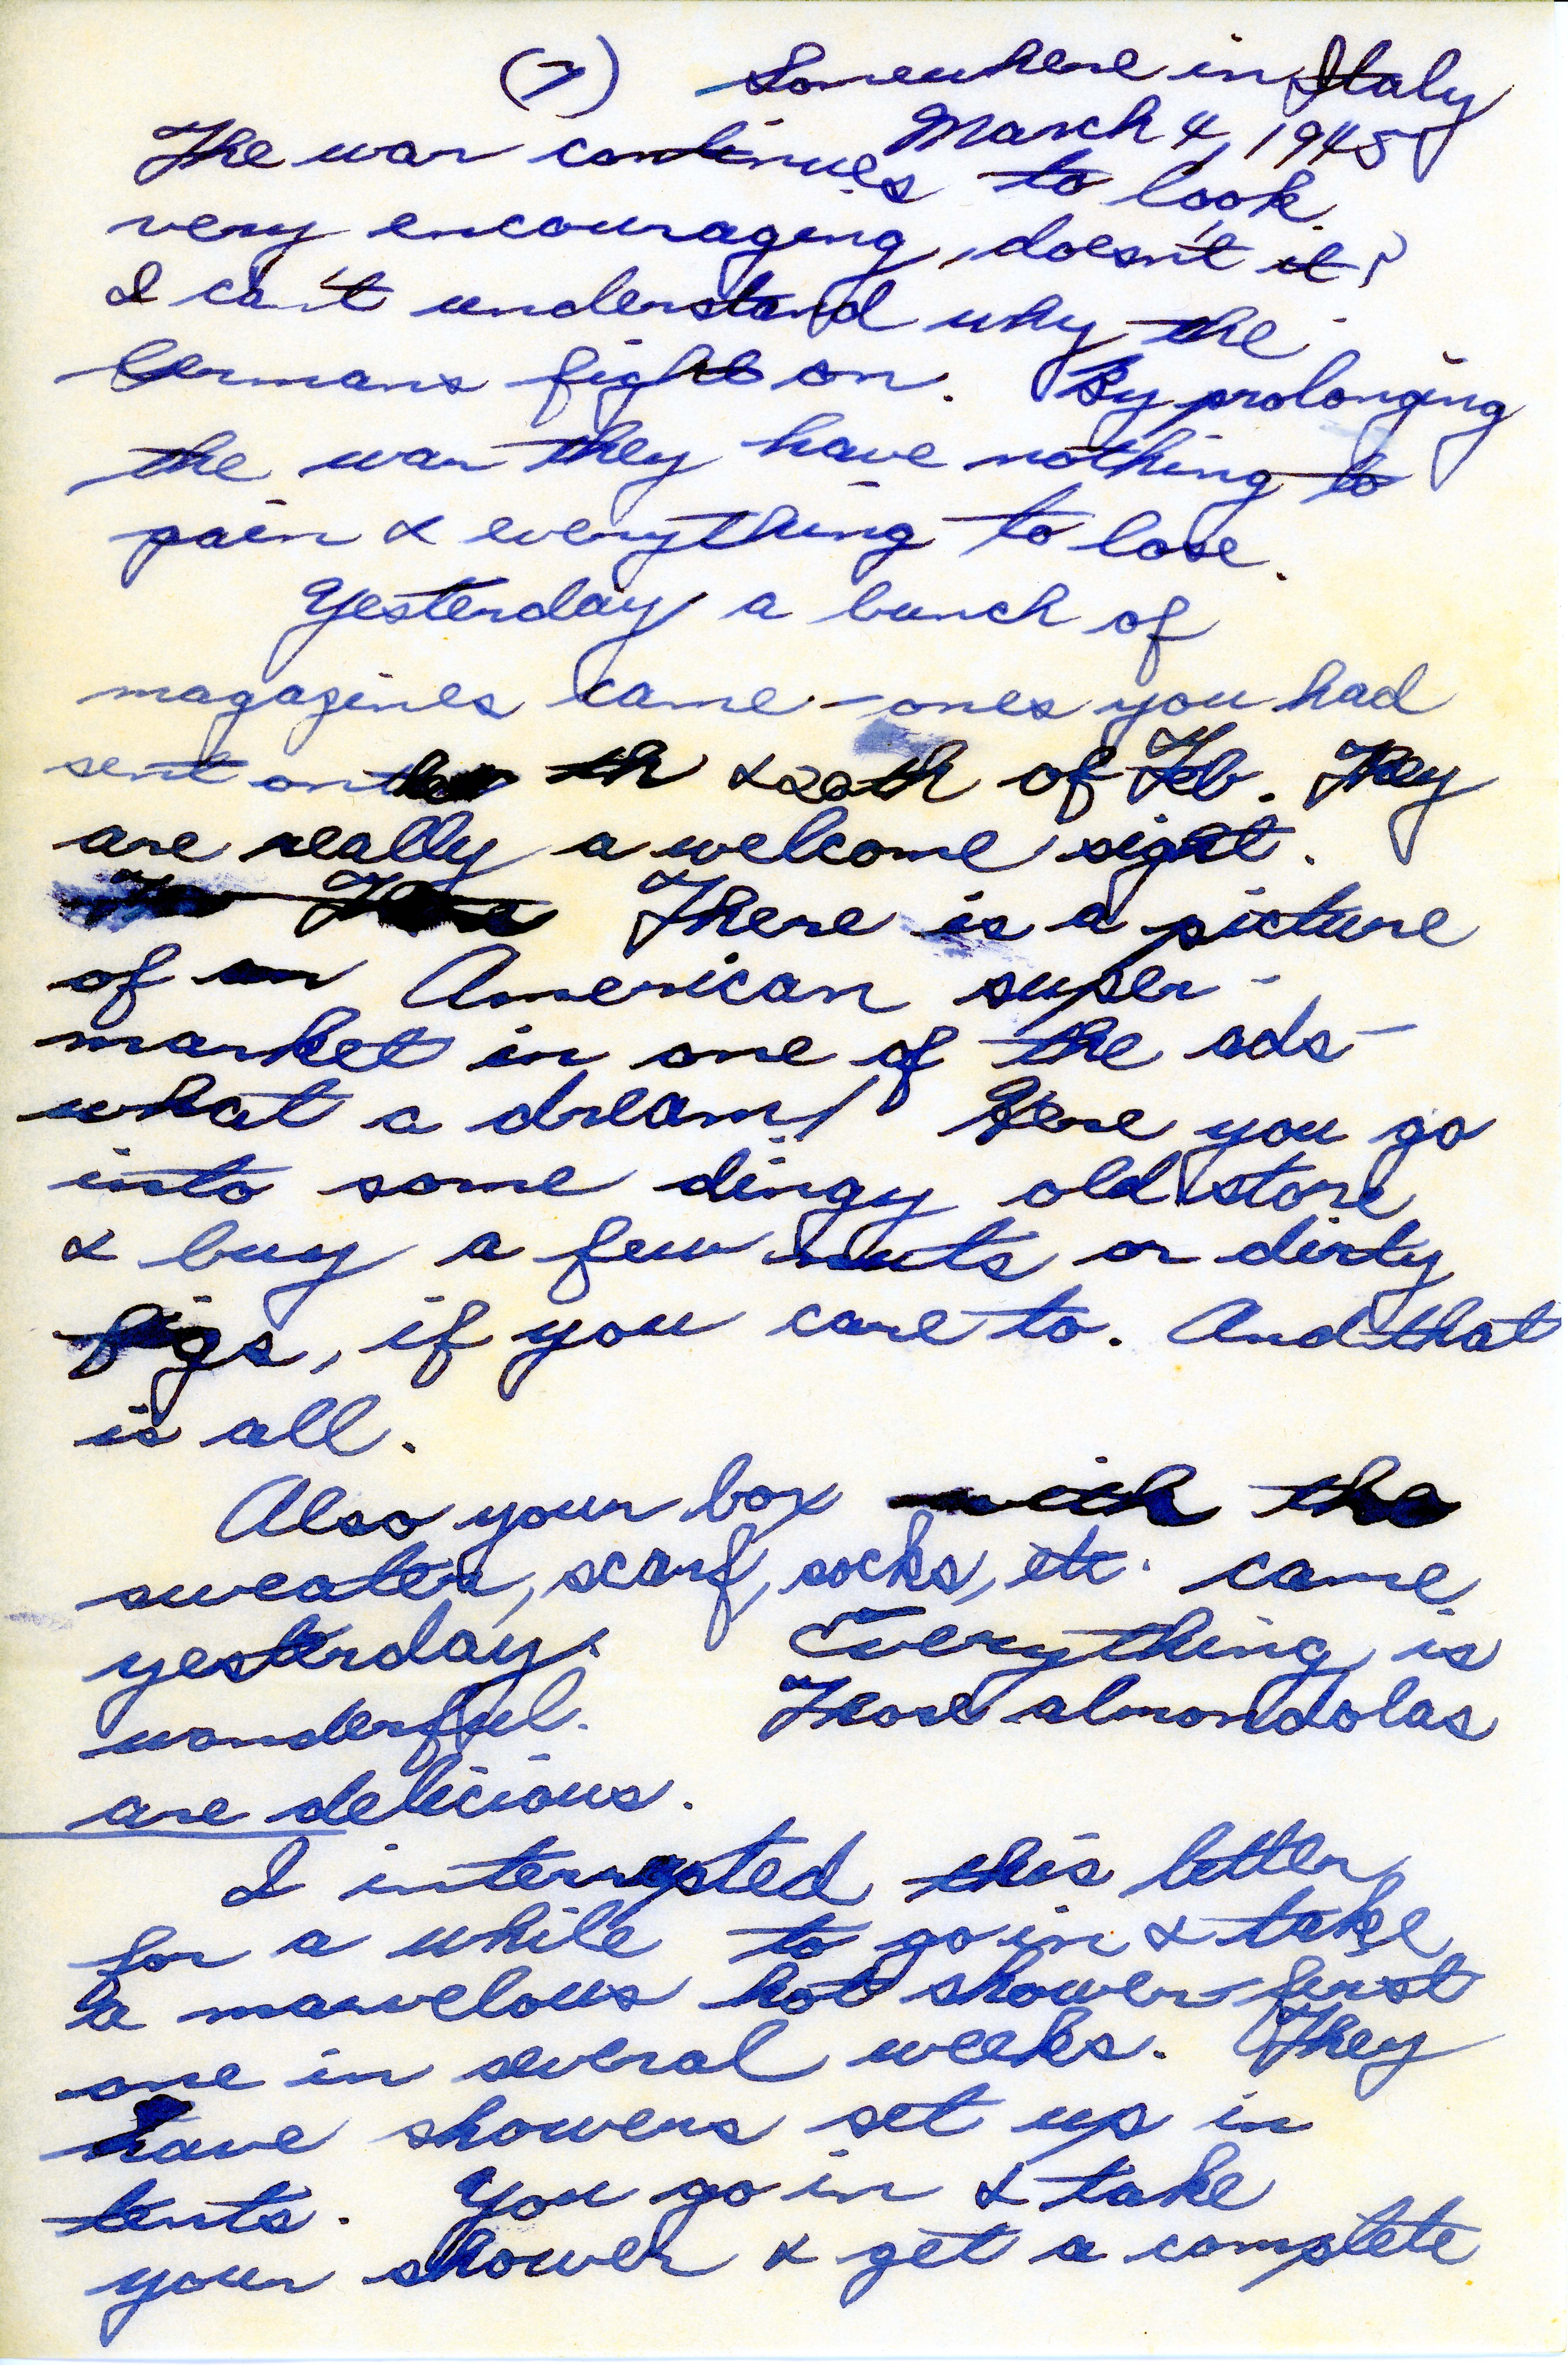 (7) Somewhere in Italy
March 4, 1945
The war continues to look
very encouraging, doesn't it?
I can't understand why the
Germans fight on. By prolonging
the war they have nothing to
gain & everything to lose.
Yesterday a bunch of
magazines came – ones you had
sent on th & 20th of Feb. They
are really a welcome sight.
There is a picture
of an American super-
market in one of the ads –
what a dream! Here you go
into some dingy old store
& buy a few nuts or dirty
figs, if you care to. And that
is all.
Also your box with the
sweater, scarf, socks, etc. came
yesterday. Everything is
wonderful. Those almondolas
are delicious.
I interrupted this letter
for a while to go in & take
a marvelous hot shower – first
one in several weeks. They
have showers set up in
tents. You go in & take
your shower & get a complete